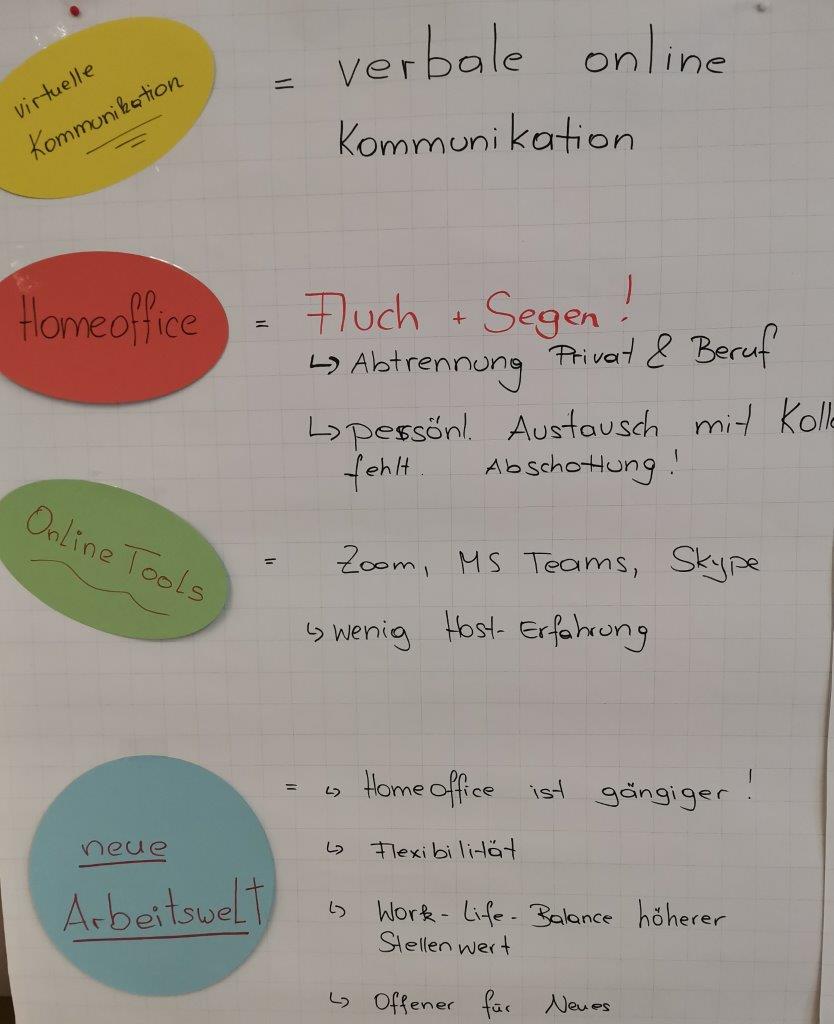 virtuelle
Kommunikation
= verbale online
Kommunikation
Homeoffice = Fluch + Segen!
↳ Abtrennung Privat & Beruf
↳ persönl. Austausch mit
fehlt. Abschottung!
Online Tools = Zoom, MS Teams, Skype
↳ wenig Host-Erfahrung
neue
Arbeitswelt
= ↳ Homeoffice ist gängiger!
↳ Flexibilität
↳ Work-Life-Balance höherer
Stellenwert
↳ Offener für Neues